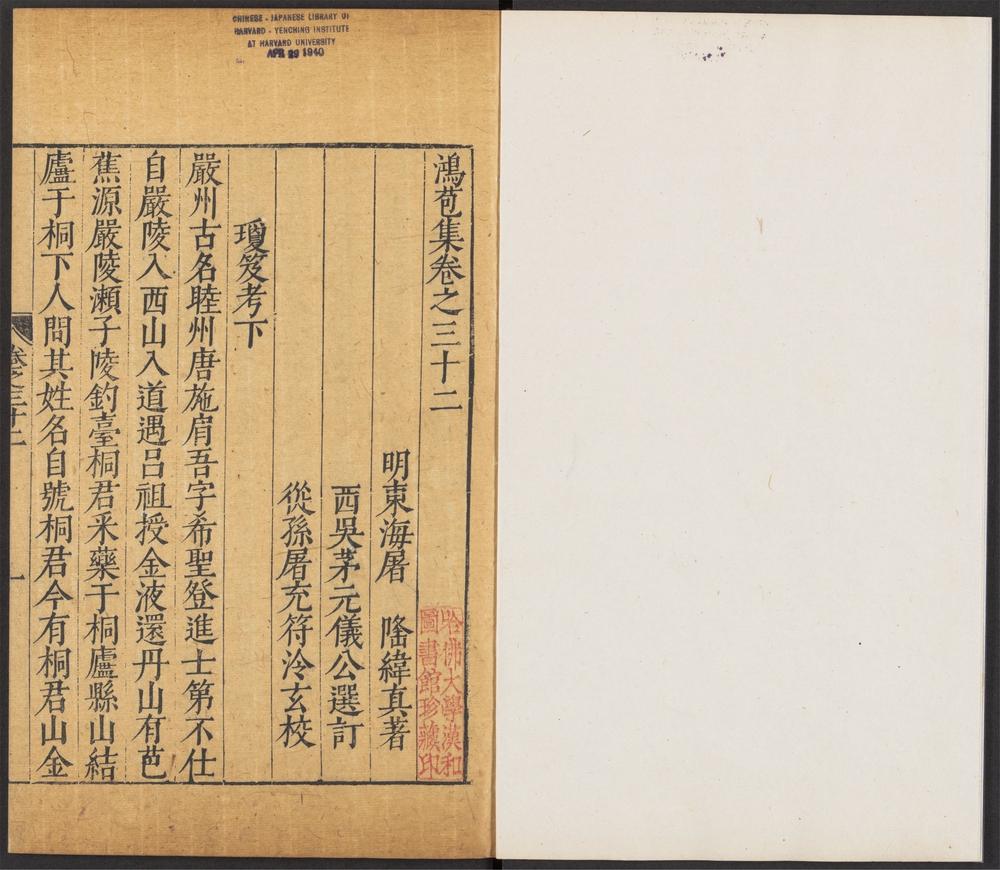 CHINESE - JAPANESE LIBRARY OF
HARVARD - YENCHING INSTITUTE
AT HARVARD UNIVERSITY
APR 29 1940
鴻苞集卷之三十二
明東海屠　隆緯真著
西吳茅元儀公選訂
從孫屠充符泠玄校
瓊笈考下
嚴州古名睦州唐施肩吾字希聖登進士第不仕
自嚴陵入西山入道遇呂祖授金液還丹山有芭
蕉源嚴陵瀨子陵釣臺桐君采藥于桐廬縣山結
廬于桐下人問其姓名自號桐君今有桐君山金
卷之三十二
一
哈佛大學漢和
圖書館珍藏印